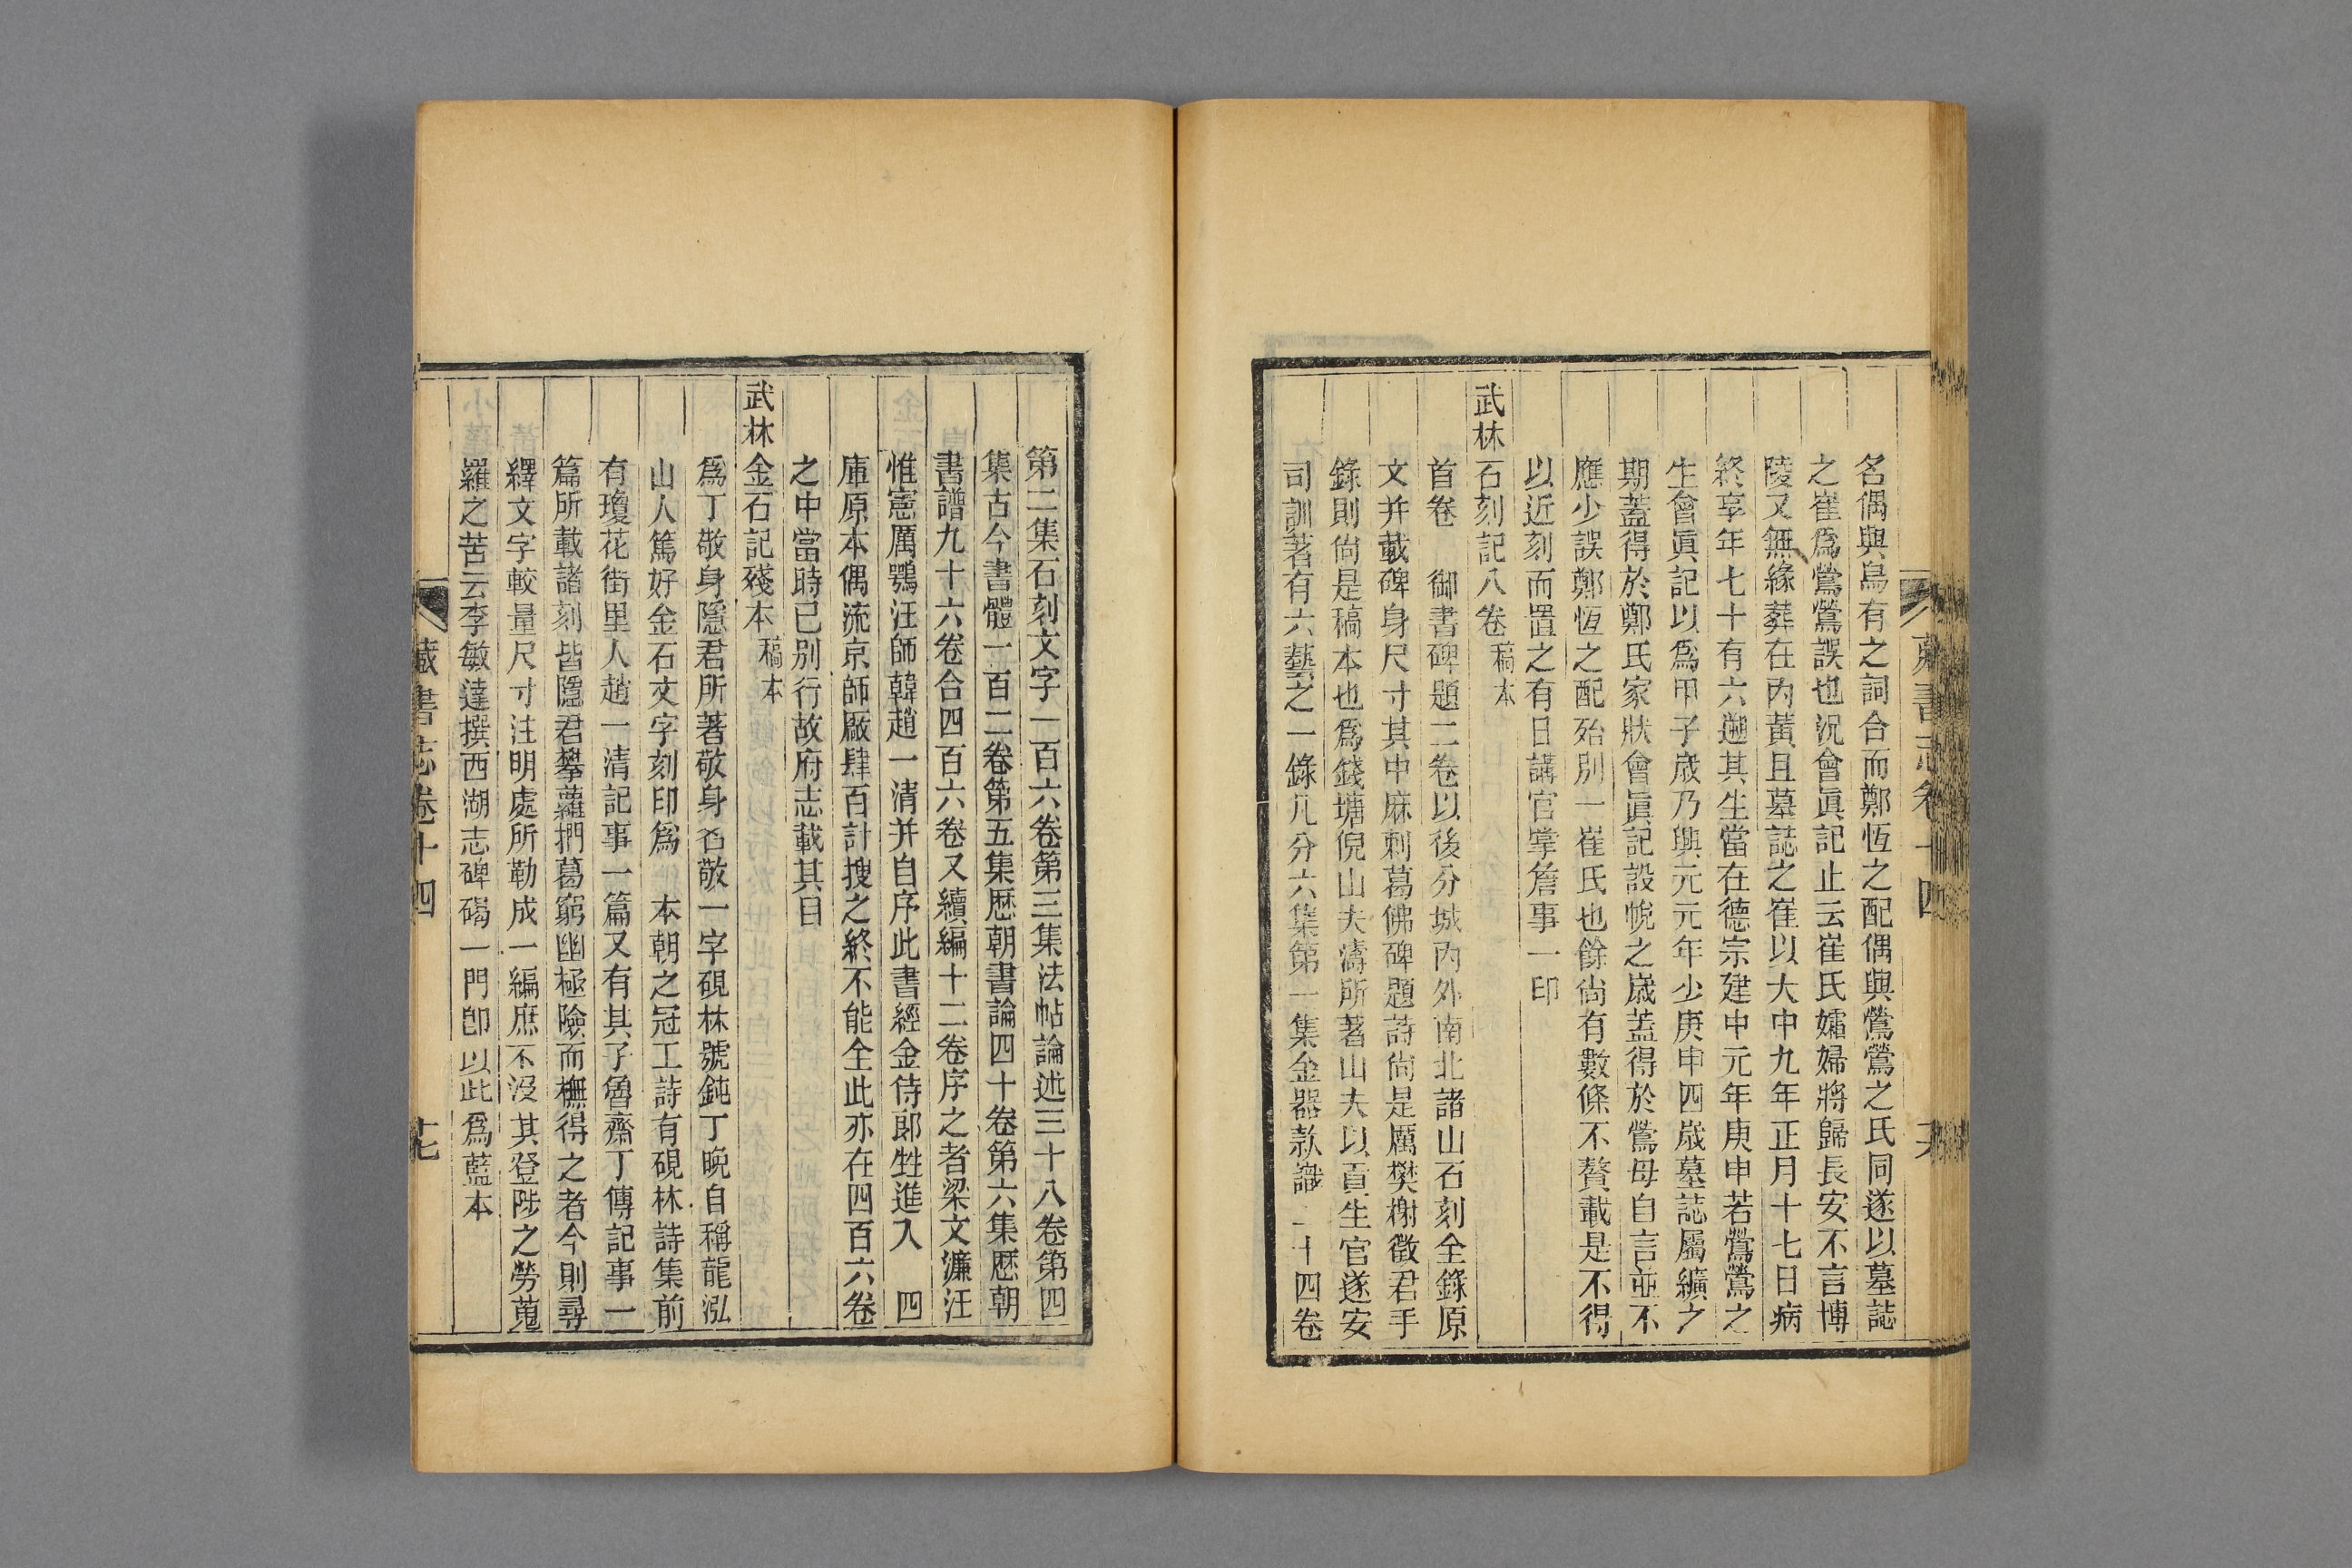 名偶與烏有之詞合而鄭恆之配偶與鶯鶯之氏同遂以墓誌
之崔爲鶯鶯誤也況會眞記止云崔氏孀婦將歸長安不言博
陵又無緣葬在內黃且墓誌之崔以大中九年正月十七日病
終享年七十有六遡其生當在德宗建中元年庚申若鶯鶯之
生會眞記以爲甲子歲乃興元元年少庚申四歲墓誌屬纊之
期蓋得於鄭氏家狀會眞記設帨之歲蓋得於鶯母自言並不
應少誤鄭恆之配殆別一崔氏也餘尙有數條不贅載是不得
以近刻而置之有日講官掌詹事一印
武林石刻記八卷 稿本
首卷 御書碑題二卷以後分城內外南北諸山石刻全錄原
文并載碑身尺寸其中麻剌葛佛碑題詩尙是厲樊榭徵君手
錄則尙是稿本也爲錢塘倪山夫濤所著山夫以貢生官遂安
司訓著有六藝之一錄凡分六集第一集金器款識二十四卷
第二集石刻文字一百六卷第三集法帖論述三十八卷第四
集古今書體一百二卷第五集歷朝書論四十卷第六集歷朝
書譜九十六卷合四百六卷又續編十二卷序之者梁文濂汪
惟憲厲鶚汪師韓趙一清并自序此書經金侍郎甡進入 四
庫原本偶流京師廠肆百計搜之終不能全此亦在四百六卷
之中當時已別行故府志載其目
武林金石記殘本 稿本
爲丁敬身隱君所著敬身名敬一字硯林號鈍丁晚自稱龍泓
山人篤好金石文字刻印爲 本朝之冠工詩有硯林詩集前
有瓊花街里人趙一清記事一篇又有其子魯齋丁傳記事一
篇所載諸刻皆隱君攀蘿捫葛窮幽極險而橅得之者今則尋
繹文字較量尺寸注明處所勒成一編庶不沒其登陟之勞蒐
羅之苦云李敏達撰西湖志碑碣一門卽以此爲藍本
藏書志卷十四
十七